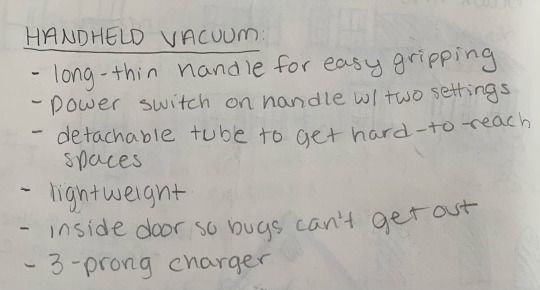 HANDHELD VACUUM:
- long-thin handle for easy gripping
- power switch on handle w/ two settings
- detachable tube to get hard-to-reach
spaces
- lightweight
- inside door so bugs can't get out
- 3-prong charger